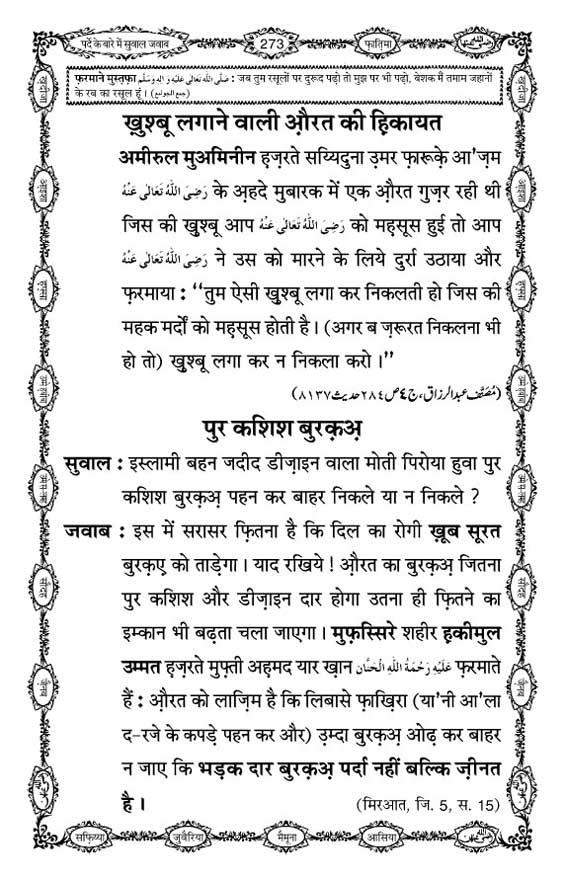 पर्दे के बारे में सुवाल जवाब
273
फ़ातिमा
फ़रमाने मुस्तफ़ा صَلَّى اللهُ تَعَالٰى عَلَيْهِ وَاٰلِهٖ وَسَلَّم : जब तुम रसूलों पर दुरूद पढ़ो तो मुझ पर भी पढ़ो, बेशक मैं तमाम जहानों
के रब का रसूल हूं। (جمع الجوامع)
ख़ुश्बू लगाने वाली औ़रत की ह़िकायत
अमीरुल मुअमिनीन ह़ज़रते सय्यिदुना उ़मर फ़ारूके़ आ'ज़म
رَضِىَ اللهُ تَعَالٰى عَنْهُ के अ़हदे मुबारक में एक औ़रत गुज़र रही थी
जिस की ख़ुश्बू आप رَضِىَ اللهُ تَعَالٰى عَنْهُ को महसूस हुई तो आप
رَضِىَ اللهُ تَعَالٰى عَنْهُ ने उस को मारने के लिये दुर्रा उठाया और
फ़रमाया : “तुम ऐसी ख़ुश्बू लगा कर निकलती हो जिस की
महक मर्दों को महसूस होती है। (अगर ब ज़रूरत निकलना भी
हो तो) ख़ुश्बू लगा कर न निकला करो।”
(مُصَنَّف عبدالرزاق، ج٤ ص٢٨٤ حديث ٨١٣٧)
पुर कशिश बुरक़अ़
सुवाल : इस्लामी बहन जदीद डीज़ाइन वाला मोती पिरोया हुवा पुर
कशिश बुरक़अ़ पहन कर बाहर निकले या न निकले ?
जवाब : इस में सरासर फ़ितना है कि दिल का रोगी ख़ूब सूरत
बुरक़ए़ को ताड़ेगा। याद रखिये ! औ़रत का बुरक़अ़ जितना
पुर कशिश और डीज़ाइन दार होगा उतना ही फ़ितने का
इम्कान भी बढ़ता चला जाएगा। मुफ़स्सिरे शहीर ह़कीमुल
उम्मत ह़ज़रते मुफ़्ती अह़मद यार ख़ान عَلَيْهِ رَحْمَةُ اللهِ الْحَنَّان फ़रमाते
हैं : औ़रत को लाज़िम है कि लिबासे फ़ाख़िरा (या'नी आ'ला
द-रजे के कपड़े पहन कर और) उ़म्दा बुरक़अ़ ओढ़ कर बाहर
न जाए कि भड़क दार बुरक़अ़ पर्दा नहीं बल्कि ज़ीनत
है। (मिरआत, जि. 5, स. 15)
सफ़िय्या
जुवैरिया
मैमूना
आसिया